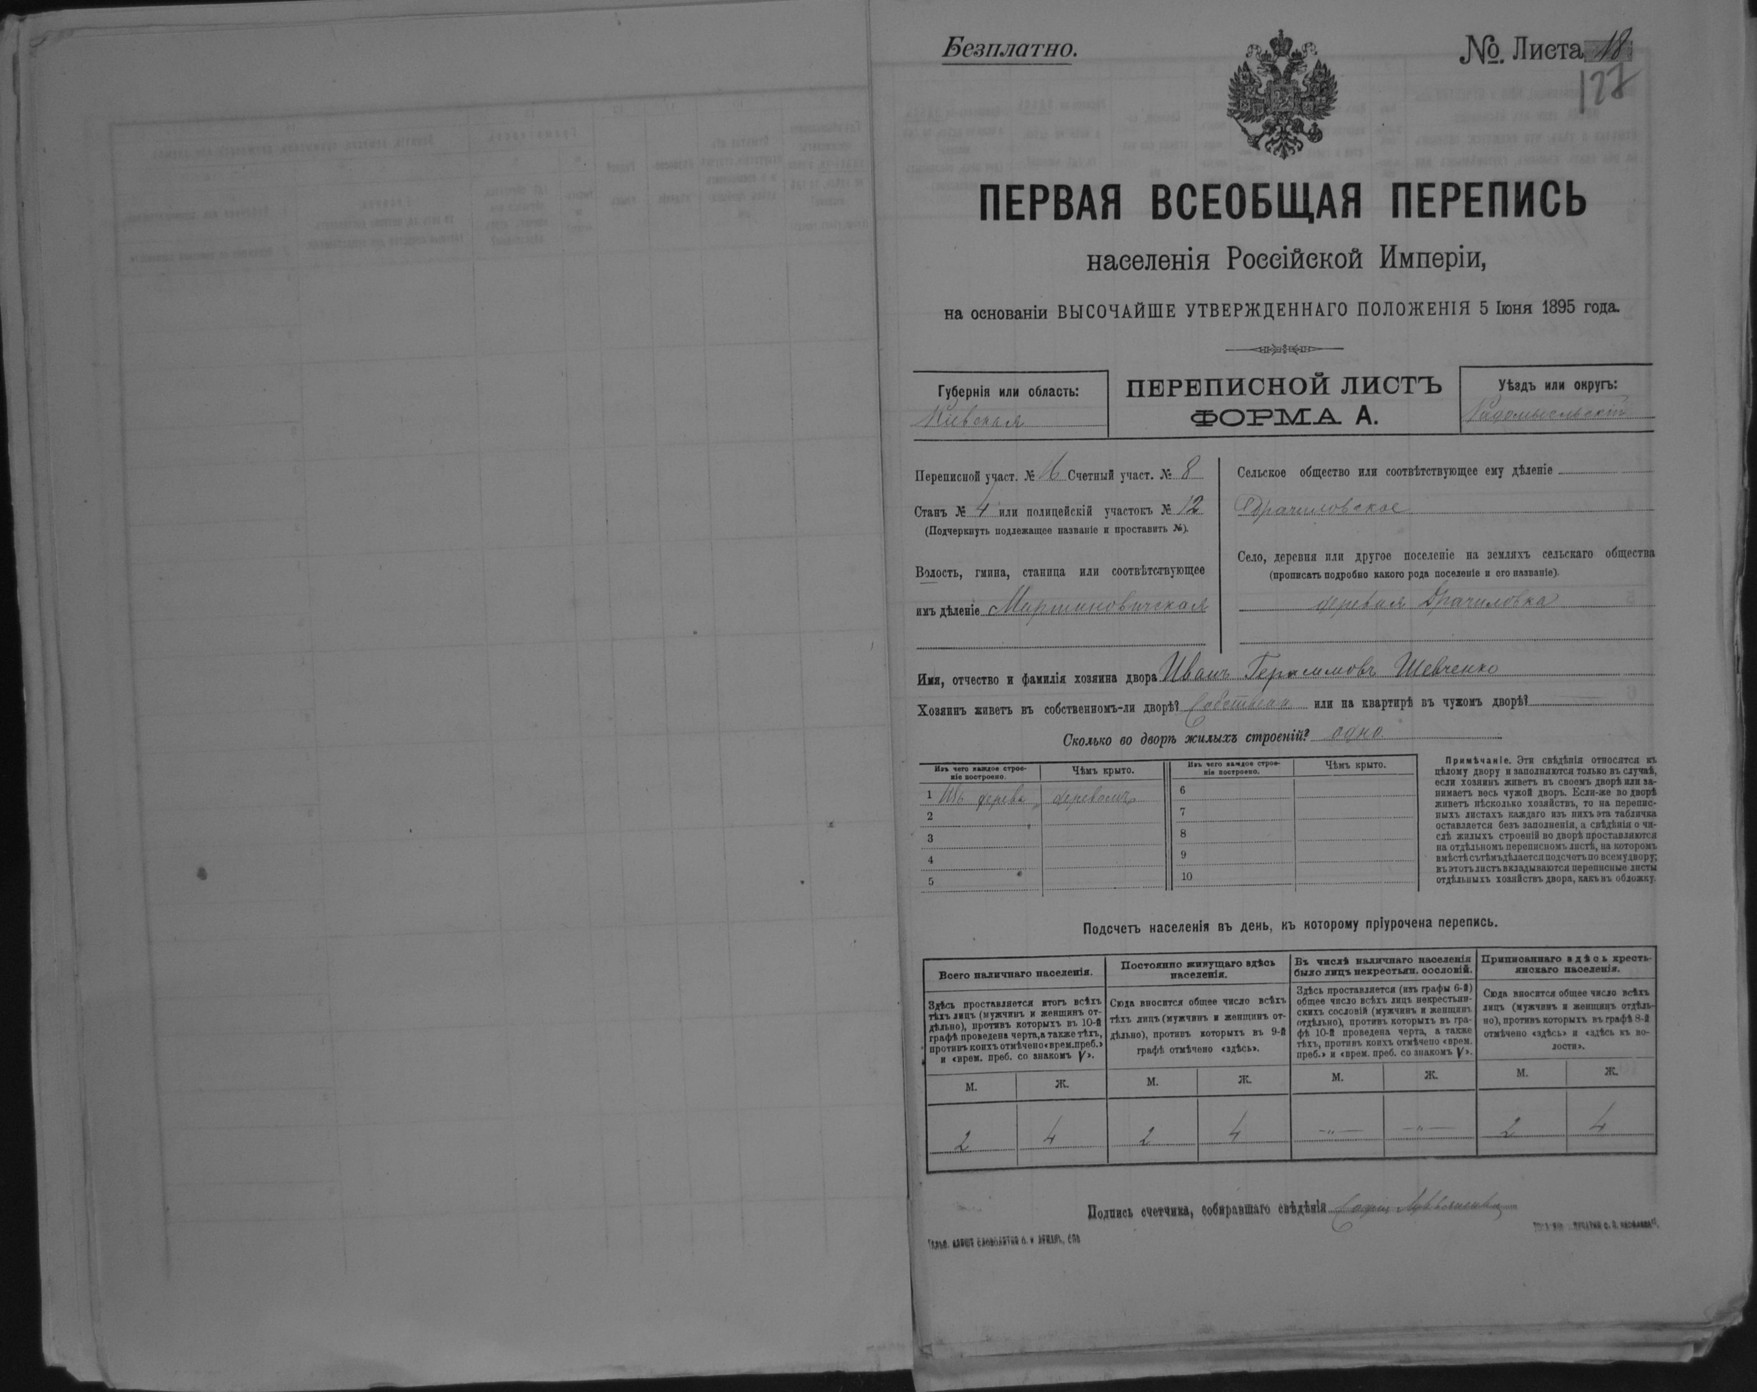 Безплатно.
№. Листа 18
127
ПЕРВАЯ ВСЕОБЩАЯ ПЕРЕПИСЬ
населенія Россійской Имперіи,
на основаніи ВЫСОЧАЙШЕ УТВЕРЖДЕННАГО ПОЛОЖЕНІЯ 5 Іюня 1895 года.
Губернія или область:
Кіевская
ПЕРЕПИСНОЙ ЛИСТЪ
ФОРМА А.
Уѣздъ или округъ:
Радомысльскій
Переписной участ. № Счетный участ. № 8
Станъ № 4 или полицейскій участокъ № 12
(Подчеркнуть подлежащее названіе и проставить №).
Волость, гмина, станица или соотвѣтствующее
имъ дѣленіе Мартиновичская
Сельское общество или соотвѣтствующее ему дѣленіе
Драчиловское
Село, деревня или другое поселеніе на земляхъ сельскаго общества
(прописать подробно какого рода поселеніе и его названіе).
деревня Драчиловка
Имя, отчество и фамилія хозяина двора Иванъ Герасимовъ Шевченко
Хозяинъ живетъ въ собственномъ-ли дворѣ? или на квартирѣ въ чужомъ дворѣ?
Сколько во дворѣ жилыхъ строеній? одно
Изъ чего каждое строе-
ніе построено.
Чѣмъ крыто.
Изъ чего каждое строе-
ніе построено.
Чѣмъ крыто.
1 Изъ дерева деревомъ
2
3
4
5
6
7
8
9
10
Примѣчаніе. Эти свѣдѣнія относятся къ
цѣлому двору и заполняются только въ случаѣ,
если хозяинъ живетъ въ своемъ дворѣ или за-
нимаетъ весь чужой дворъ. Если-же во дворѣ
живетъ нѣсколько хозяйствъ, то на перепис-
ныхъ листахъ каждаго изъ нихъ эта табличка
оставляется безъ заполненія, а свѣдѣнія о чи-
слѣ жилыхъ строеній во дворѣ проставляются
на отдѣльномъ переписномъ листѣ, на которомъ
вмѣстѣ съ тѣмъ дѣлается подсчетъ по всему двору;
въ этотъ листъ вкладываются переписные листы
отдѣльныхъ хозяйствъ двора, какъ въ обложку.
Подсчетъ населенія въ день, къ которому пріурочена перепись.
Всего наличнаго населенія.
Здѣсь проставляется итогъ всѣхъ
тѣхъ лицъ (мужчинъ и женщинъ от-
дѣльно), противъ которыхъ въ 10-й
графѣ проведена черта, а также тѣхъ,
противъ коихъ отмѣчено «врем. преб.»
и «врем. преб. со знакомъ V».
М. Ж.
2 4
Постоянно живущаго здѣсь
населенія.
Сюда вносится общее число всѣхъ
тѣхъ лицъ (мужчинъ и женщинъ от-
дѣльно), противъ которыхъ въ 9-й
графѣ отмѣчено «здѣсь».
М. Ж.
2 4
Въ числѣ наличнаго населенія
было лицъ некрестьян. сословій.
Здѣсь проставляется (изъ графы 6-й)
общее число всѣхъ лицъ некрестьян-
скихъ сословій (мужчинъ и женщинъ
отдѣльно), противъ которыхъ въ гра-
фѣ 10-й проведена черта, а также
тѣхъ, противъ коихъ отмѣчено «врем.
преб.» и «врем. преб. со знакомъ V».
М. Ж.
—„— —„—
Приписаннаго здѣсь кресть-
янскаго населенія.
Сюда вносится общее число всѣхъ
лицъ (мужчинъ и женщинъ отдѣль-
но), противъ которыхъ въ графѣ 8-й
отмѣчено «здѣсь» и «здѣсь въ во-
лости».
М. Ж.
2 4
Подпись счетчика, собиравшаго свѣдѣнія